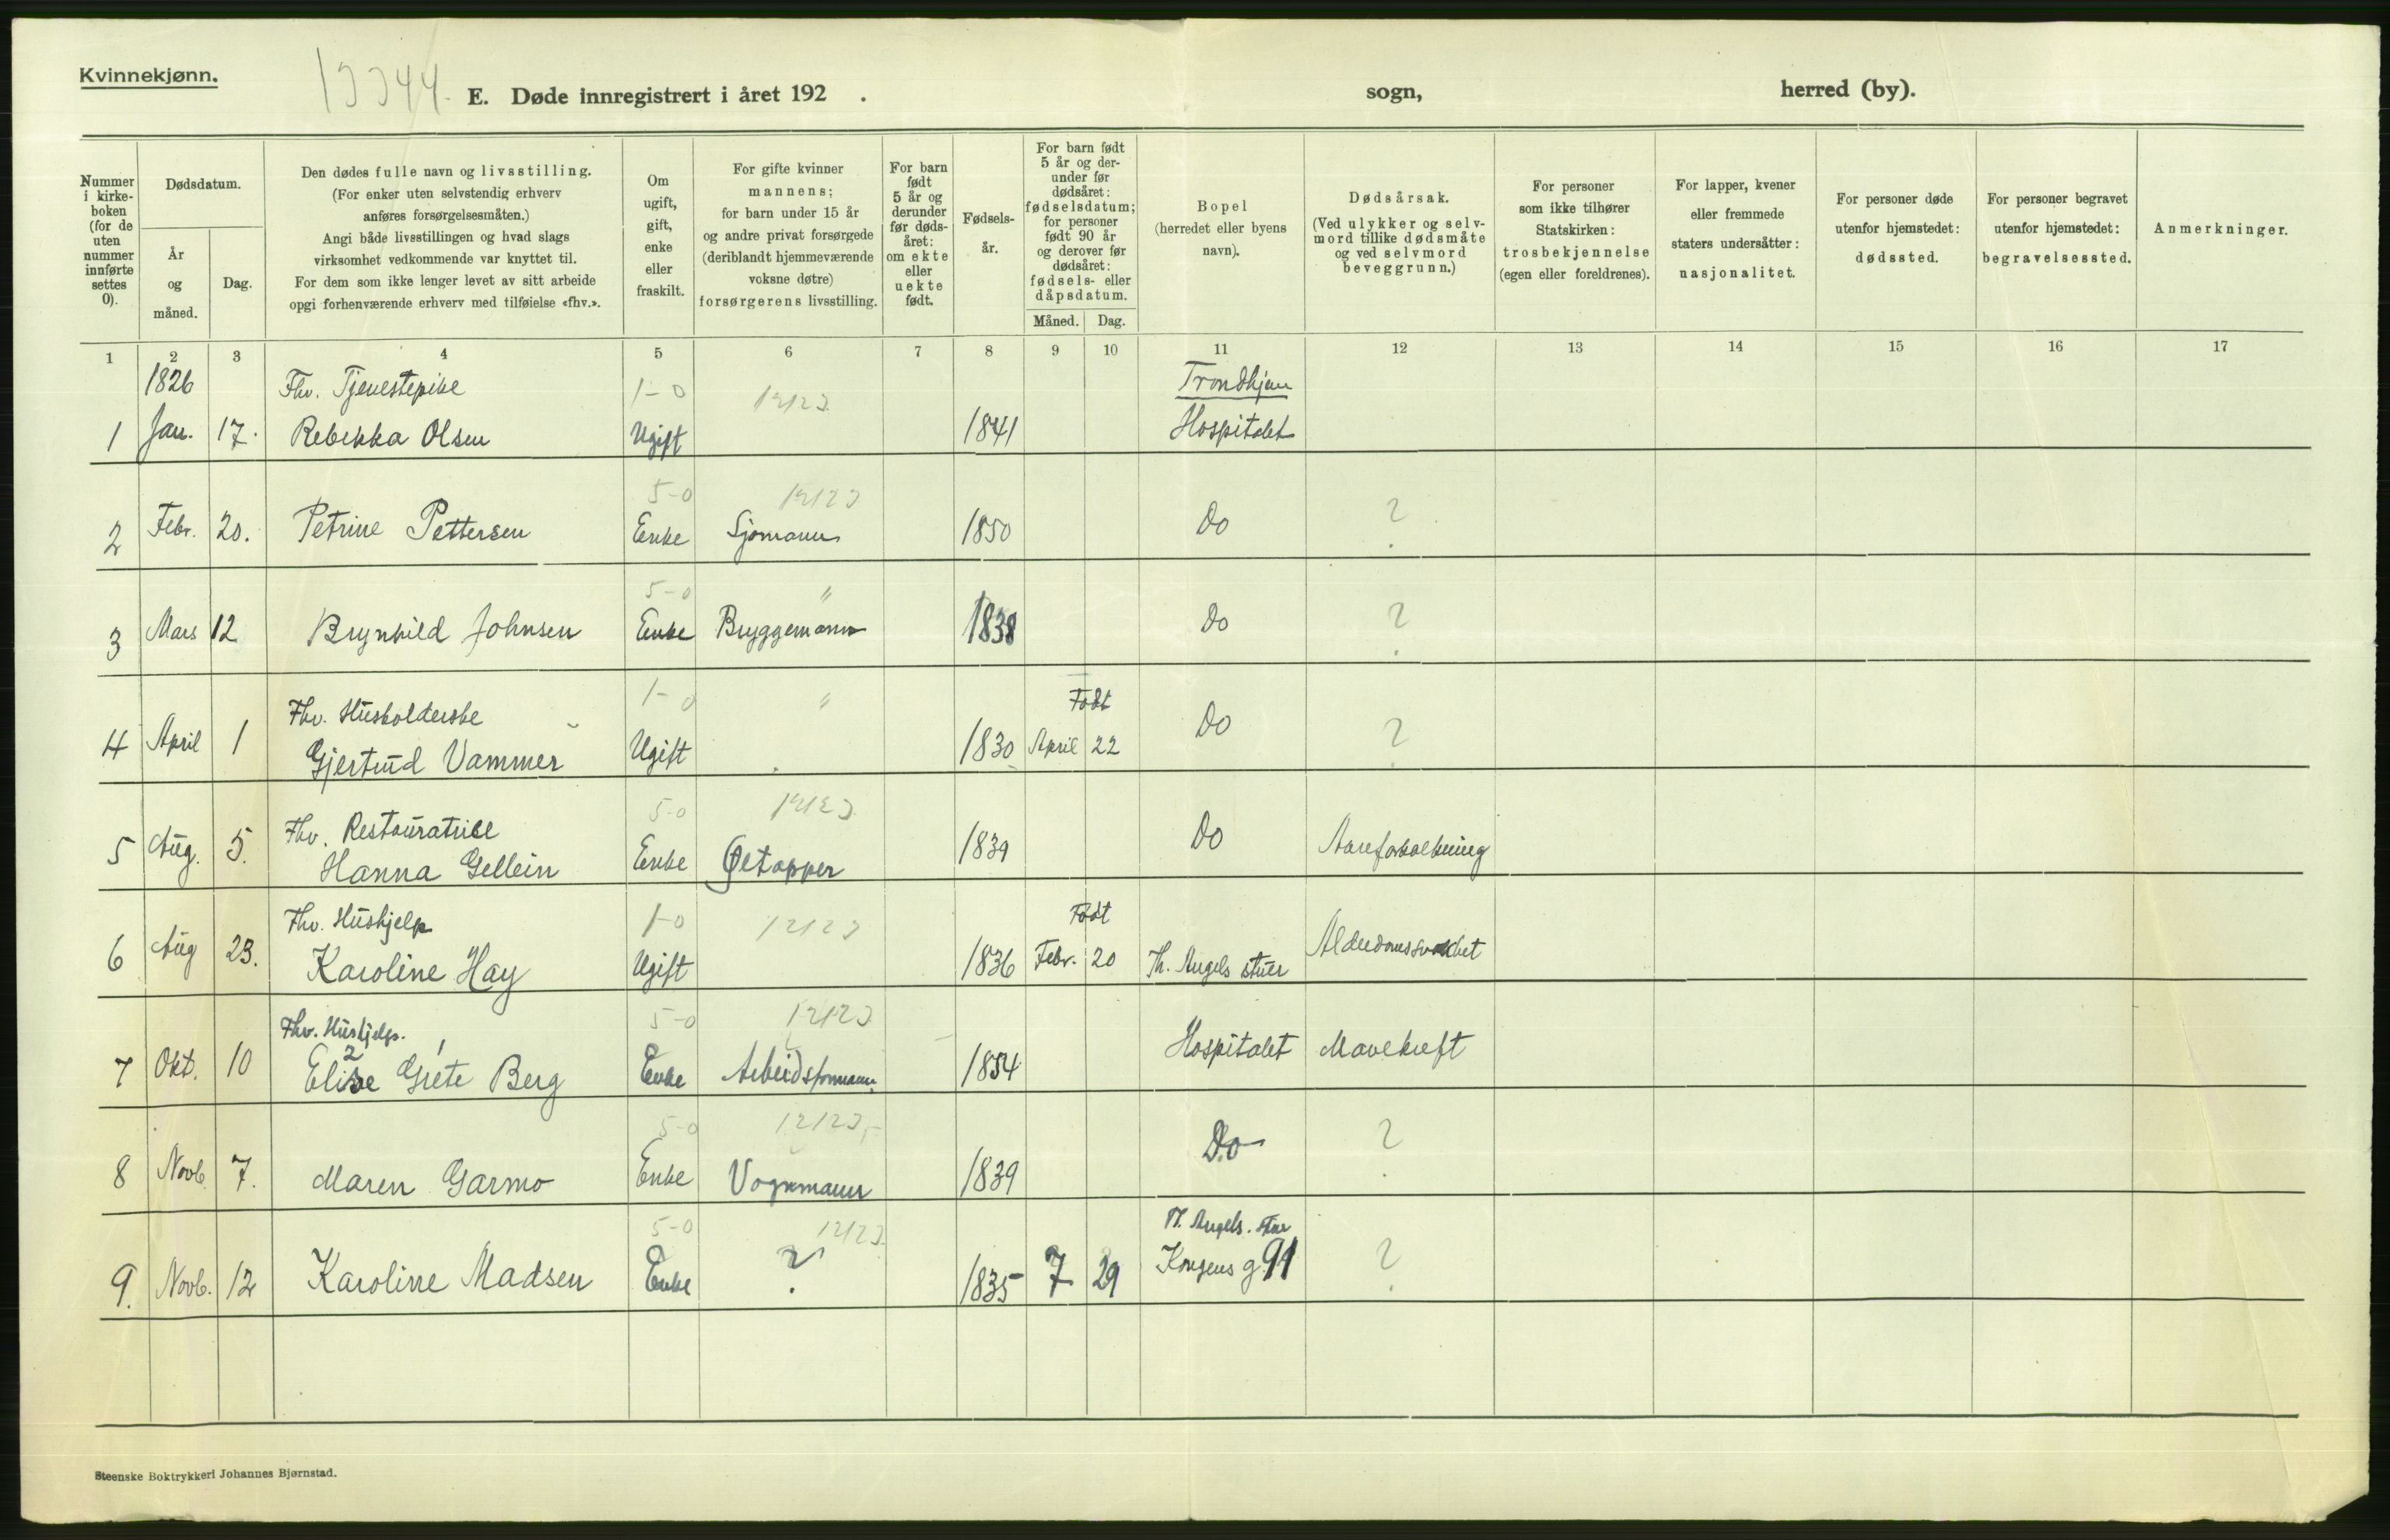 Kvinnekjønn.
13344.
E. Døde innregistrert i året 192 .
sogn,
herred (by).
Nummer i kirke-boken (for de uten nummer innførte settes 0).
Dødsdatum.
År og måned.
Dag.
Den dødes fulle navn og livsstilling.
(For enker uten selvstendig erhverv
anføres forsørgelsesmåten.)
Angi både livsstillingen og hvad slags
virksomhet vedkommende var knyttet til.
For dem som ikke lenger levet av sitt arbeide
opgi forhenværende erhverv med tilføielse «fhv.».
Om ugift, gift, enke eller fraskilt.
For gifte kvinner
mannens;
for barn under 15 år
og andre privat forsørgede
(deriblandt hjemmeværende
voksne døtre)
forsørgerens livsstilling.
For barn født 5 år og derunder før døds-året: om ekte eller uekte født.
Fødsels-år.
For barn født 5 år og der-under før dødsåret: fødselsdatum; for personer født 90 år og derover før dødsåret: fødsels- eller dåpsdatum.
Måned. Dag.
Bopel
(herredet eller byens
navn).
Dødsårsak.
(Ved ulykker og selv-
mord tillike dødsmåte
og ved selvmord
beveggrunn.)
For personer
som ikke tilhører
Statskirken:
trosbekjennelse
(egen eller foreldrenes).
For lapper, kvener
eller fremmede
staters undersåtter:
nasjonalitet.
For personer døde
utenfor hjemstedet:
dødssted.
For personer begravet
utenfor hjemstedet:
begravelsessted.
Anmerkninger.
1 2 3 4 5 6 7 8 9 10 11 12 13 14 15 16 17
1826 Fhv. Tjenestepike 1-0 12123 Trondhjem
1 Jan. 17. Rebekka Olsen Ugift 1841 Hospitalet
5-0 12123
2 Febr. 20. Petrine Pettersen Enke Sjømann 1850 Do ?
5-0 "
3 Mars 12 Brynhild Johnsen Enke Bryggemann 1838 Do ?
Fhv. Husholderske 1-0 " Født
4 April 1 Gjertrud Vammer Ugift 1830 April 22 Do ?
Fhv. Restauratrise 5-0 12123
5 Aug. 5. Hanna Gellein Enke Øltapper 1839 Do Aareforkalkning
Fhv. Hushjelp 1-0 12123 Født
6 Aug 23. Karoline Hay Ugift 1836 Febr. 20 Th. Angels stuer Alderdomssvakhet
Fhv. Hushjelp. 5-0 12123
2 1
7 Okt. 10 Elise Grete Berg Enke Arbeidsformann 1854 Hospitalet Mavekreft
5-0 12123
8 Novb. 7. Maren Garmo Enke Vognmann 1839 Do ?
5-0 12123 Th. Angels. stue
9. Novb. 12 Karoline Madsen Enke ? 1835 7 29 Kongens g 91 ?
Steenske Boktrykkeri Johannes Bjørnstad.